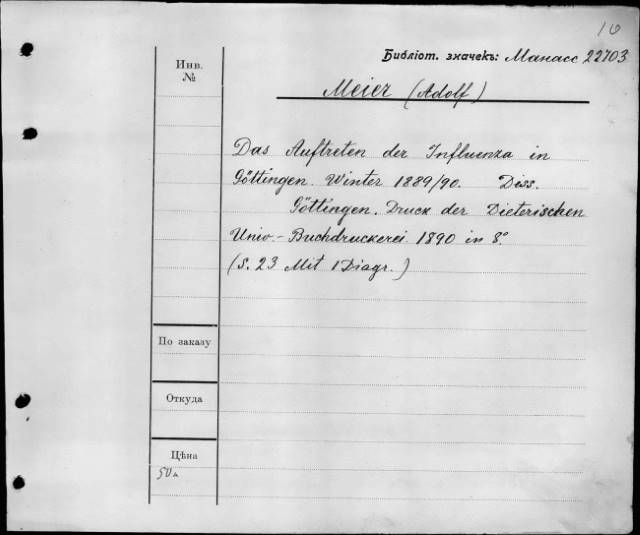 10
Библіот. значекъ: Манасс 22703
Инв.
№
Meier (Adolf)
Das Auftreten der Influenza in
Göttingen. Winter 1889/90. Diss.
Göttingen. Druck der Dieterischen
Univ.-Buchdruckerei. 1890 in 8°
(S. 23 Mit 1 Diagr.)
По заказу
Откуда
Цѣна
50